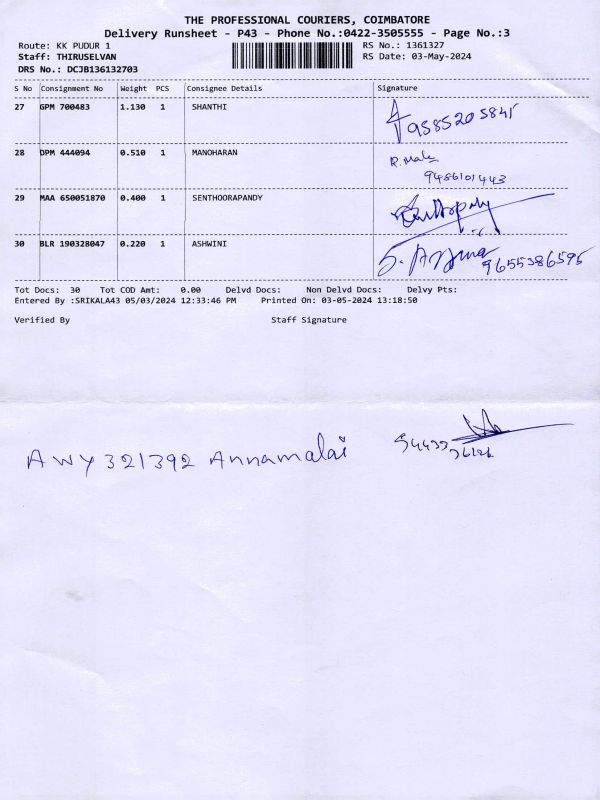 THE PROFESSIONAL COURIERS, COIMBATORE
Delivery Runsheet - P43 - Phone No.:0422-3505555 - Page No.:3
Route: KK PUDUR 1 RS No.: 1361327
Staff: THIRUSELVAN RS Date: 03-May-2024
DRS No.: DCJB136132703
S No Consignment No Weight PCS Consignee Details Signature
27 GPM 700483 1.130 1 SHANTHI
9585205845
28 DPM 444094 0.510 1 MANOHARAN
9486101443
29 MAA 650051870 0.400 1 SENTHOORAPANDY
30 BLR 190328047 0.220 1 ASHWINI
9655386595
Tot Docs: 30 Tot COD Amt: 0.00 Delvd Docs: Non Delvd Docs: Delvy Pts:
Entered By :SRIKALA43 05/03/2024 12:33:46 PM Printed On: 03-05-2024 13:18:50
Verified By Staff Signature
AWY 321392 Annamalai